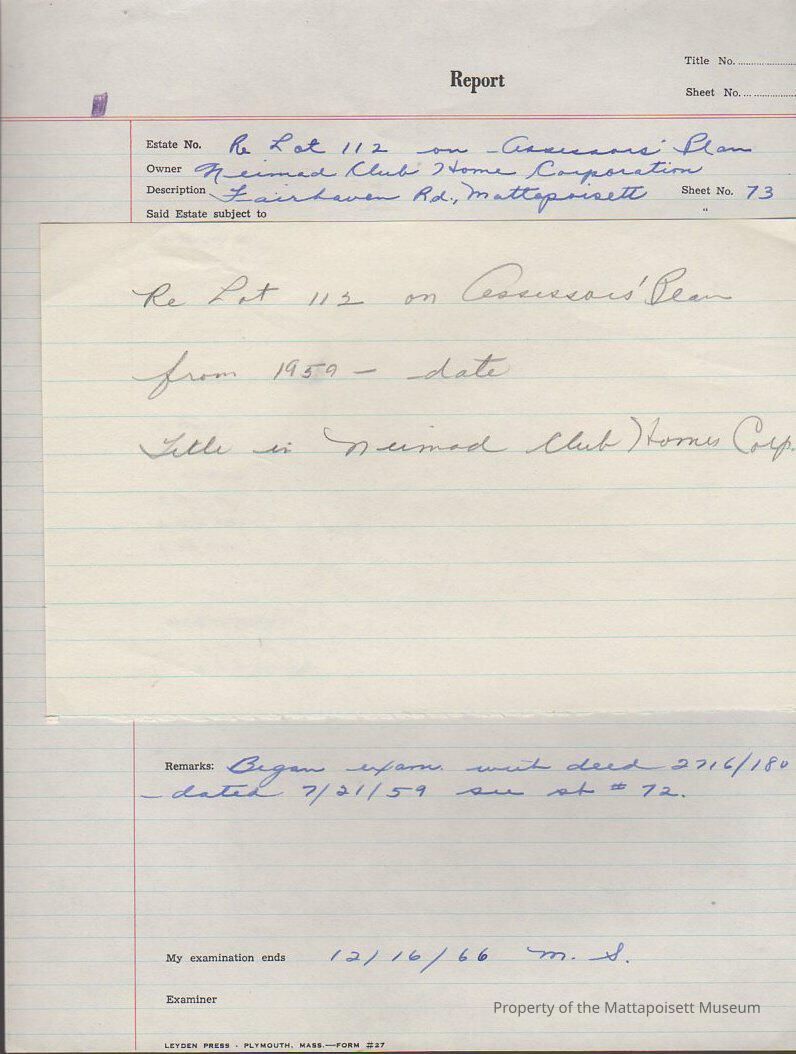 Report
Title No.
Sheet No.
Estate No. Re Lot 112 on Assessors' Plan
Owner Neimad Club Home Corporation
Description Fairhaven Rd., Mattapoisett Sheet No. 73
Said Estate subject to "
Re Lot 112 on Assessors' Plan
from 1959 — date
Title in Neimad Club Homes Corp.
Remarks: Began exam. with deed 2716/180
dated 7/21/59 see sh # 72.
My examination ends 12/16/66 M. S.
Examiner
Property of the Mattapoisett Museum
LEYDEN PRESS - PLYMOUTH, MASS.—FORM #27